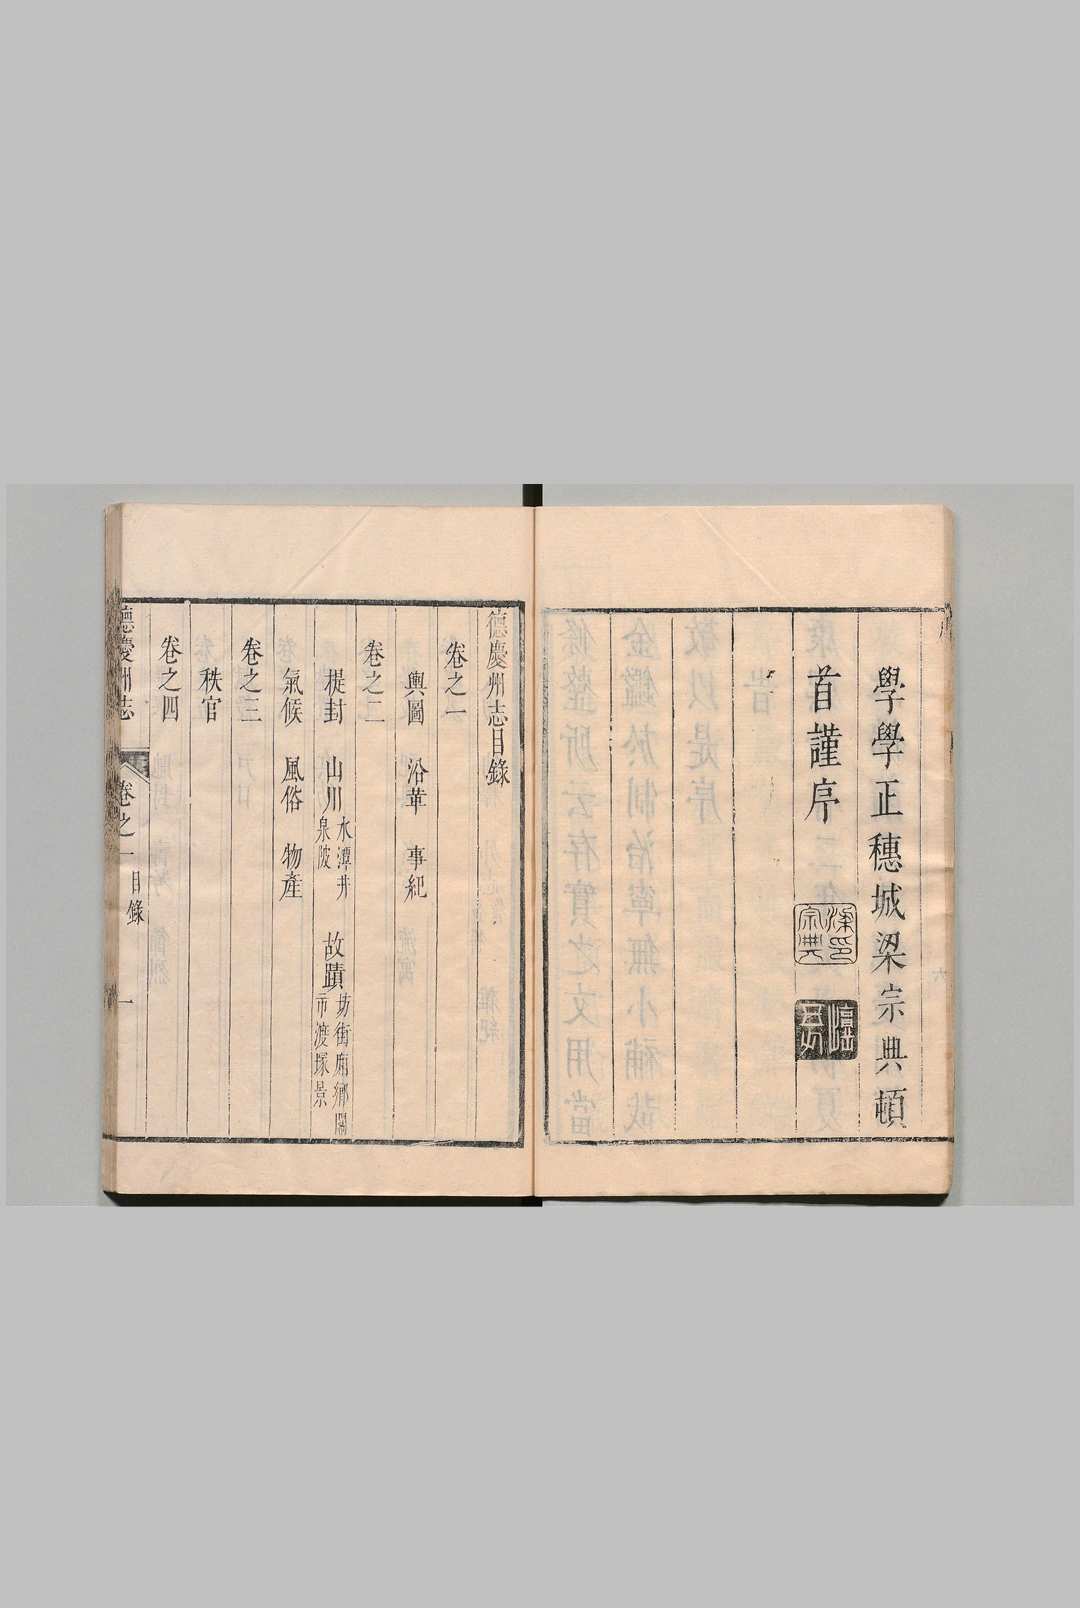 學學正穗城梁宗典頓
首謹序
德慶州志目錄
卷之一
輿圖 沿革 事紀
卷之二
提封 山川 水潭井泉陂 故蹟 坊街廟鄉閣市渡塚景
氣候 風俗 物產
卷之三
秩官
卷之四
德慶州志 卷之一 目錄 一